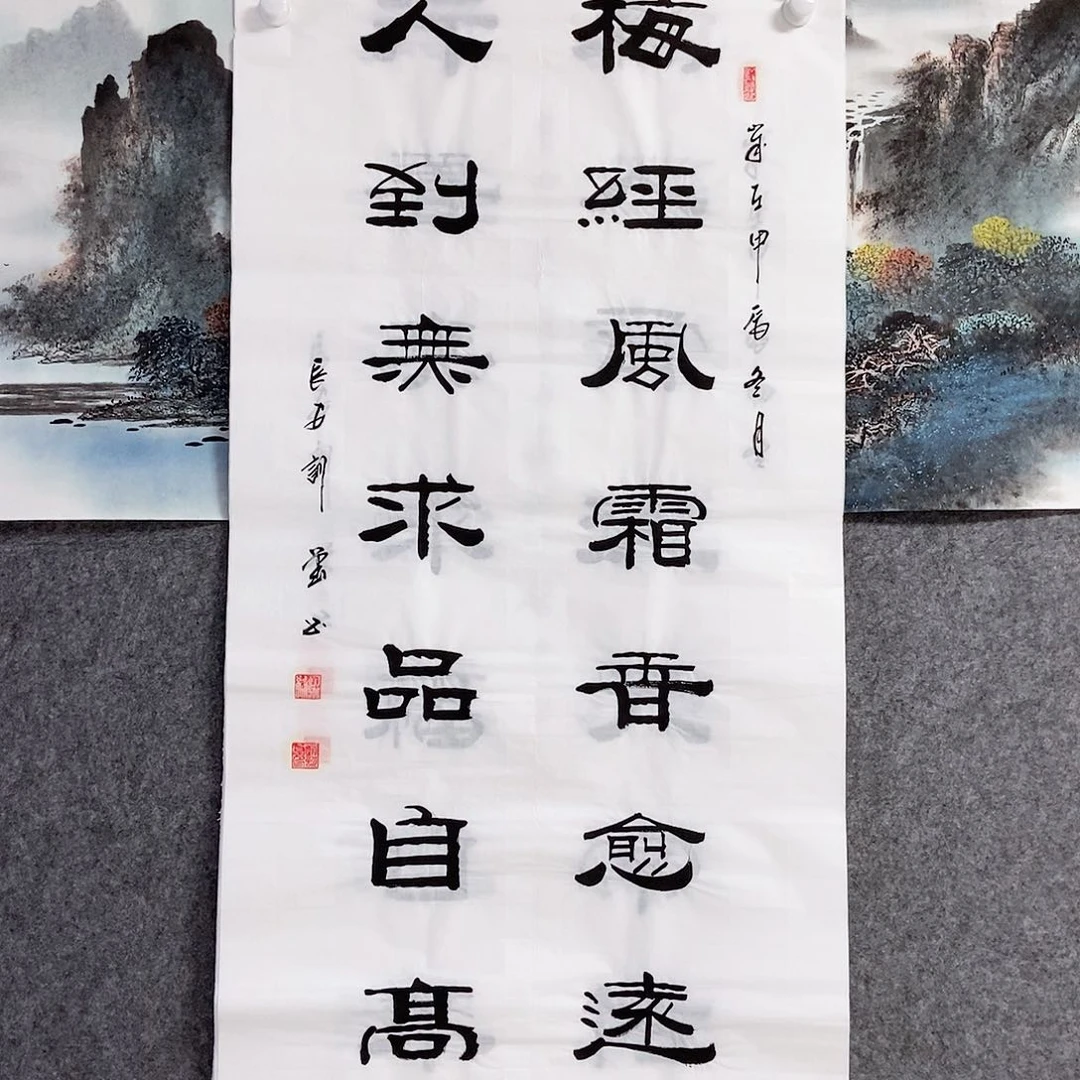 歲在甲辰冬月
梅經風霜香愈遠
人到無求品自高
長安
书